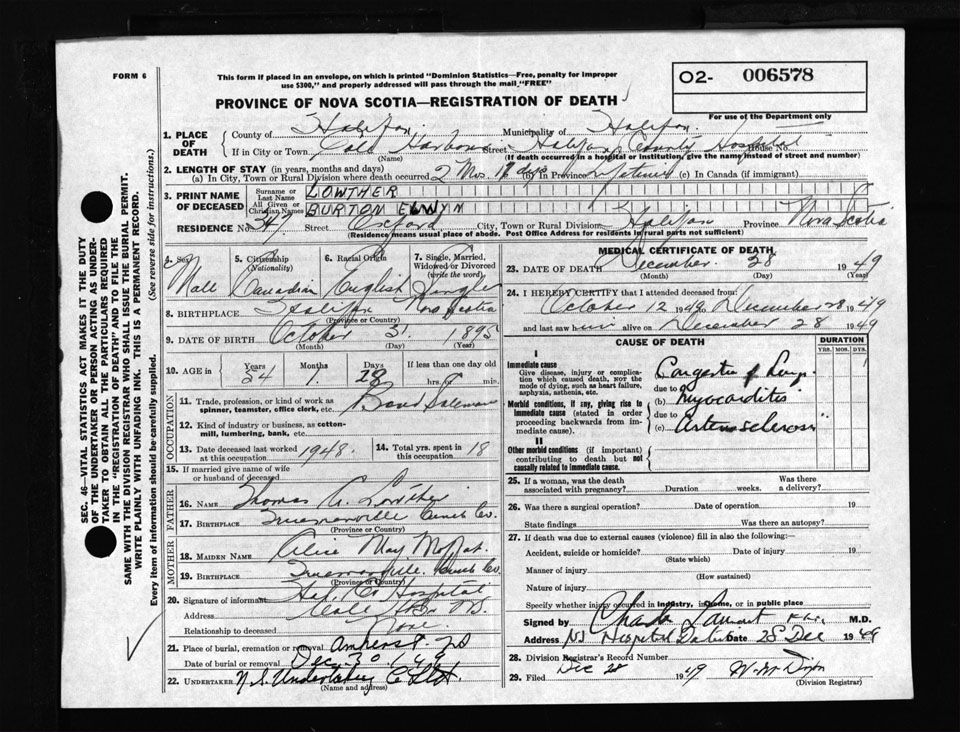 FORM 6
This form if placed in an envelope, on which is printed "Dominion Statistics—Free, penalty for improper
use $300," and properly addressed will pass through the mail "FREE"
O2- 006578
For use of the Department only
PROVINCE OF NOVA SCOTIA—REGISTRATION OF DEATH
1. PLACE OF DEATH
County of Halifax Municipality of Halifax
If in City or Town Cole Harbour Street Halifax County Hospital House No.
(Name) (If death occurred in a hospital or institution, give the name instead of street and number)
2. LENGTH OF STAY (in years, months and days)
(a) In City, Town or Rural Division where death occurred 2 Mos. 17 days (b) In Province Lifetime (c) In Canada (if immigrant)
3. PRINT NAME OF DECEASED
Surname or Last Name LOWTHER
All Given or Christian Names BURTON
RESIDENCE No. 347 Street Oxford City, Town or Rural Division Halifax Province Nova Scotia
(Residence means usual place of abode. Post Office Address for residents in rural parts not sufficient)
4. Sex Male
5. Citizenship (Nationality) Canadian
6. Racial Origin English
7. Single, Married, Widowed or Divorced (write the word) Single
8. BIRTHPLACE Halifax Nova Scotia
(Province or Country)
9. DATE OF BIRTH October 31 1895
(Month) (Day) (Year)
10. AGE in Years 54 Months 1 Days 28 If less than one day hrs. min.
OCCUPATION
11. Trade, profession, or kind of work as
spinner, teamster, office clerk, etc. Bond Salesman
12. Kind of industry or business, as cotton-
mill, lumbering, bank, etc.
13. Date deceased last worked at this occupation 1948
14. Total yrs. spent in this occupation 18
15. If married give name of wife
or husband of deceased
FATHER
16. NAME Thomas A. Lowther
17. BIRTHPLACE Truemanville Cumb Co.
(Province or Country)
MOTHER
18. MAIDEN NAME Alice May Moffat
19. BIRTHPLACE Truemanville Cumb Co.
(Province or Country)
20. Signature of informant Hal. Co Hospital
Address Cole Hbr NS.
Relationship to deceased None
21. Place of burial, cremation or removal Amherst NS
Date of burial or removal Dec 30 49
22. UNDERTAKER N.S. Undertaking Co Ltd.
(Name and address)
MEDICAL CERTIFICATE OF DEATH
23. DATE OF DEATH December 28 1949
(Month) (Day) (Year)
24. I HEREBY CERTIFY that I attended deceased from:
October 12 1949 to December 28, 1949
and last saw him alive on December 28 1949
CAUSE OF DEATH
DURATION
YRS. MOS. DYS.
I
Immediate cause
Give disease, injury or complication which caused death, not the mode of dying, such as heart failure, asphyxia, asthenia, etc.
(a) Congestion of Lungs
due to
Morbid conditions, if any, giving rise to immediate cause (stated in order proceeding backwards from immediate cause).
(b) Myocarditis
due to
(c) Arteriosclerosis
II
Other morbid conditions (if important) contributing to death but not causally related to immediate cause.
25. If a woman, was the death
associated with pregnancy? Duration weeks. Was there a delivery?
26. Was there a surgical operation? Date of operation 19
State findings Was there an autopsy?
27. If death was due to external causes (violence) fill in also the following:
Accident, suicide or homicide? Date of injury 19
(State which)
Manner of injury
(How sustained)
Nature of injury
Specify whether injury occurred in industry, in home, or in public place
Signed by M.D.
Address NS Hospital Date 28 Dec 1949
28. Division Registrar's Record Number
29. Filed Dec 28 1949 W. M. Dixon
(Division Registrar)
SEC. 46—VITAL STATISTICS ACT MAKES IT THE DUTY
OF THE UNDERTAKER OR PERSON ACTING AS UNDER-
TAKER TO OBTAIN ALL THE PARTICULARS REQUIRED
IN THE "REGISTRATION OF DEATH" AND TO FILE THE
SAME WITH THE DIVISION REGISTRAR WHO SHALL ISSUE THE BURIAL PERMIT.
WRITE PLAINLY WITH UNFADING INK. THIS IS A PERMANENT RECORD.
Every item of information should be carefully supplied. (See reverse side for instructions.)